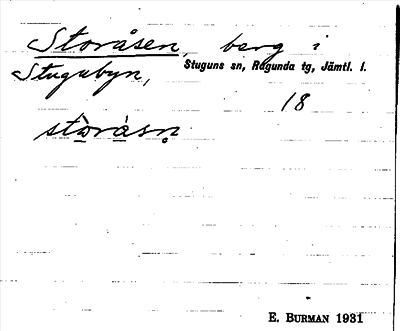 Storåsen, berg i
Stugubyn, Stuguns sn, Ragunda tg, Jämtl. l.
18
stòràsn̥
E. BURMAN 1931